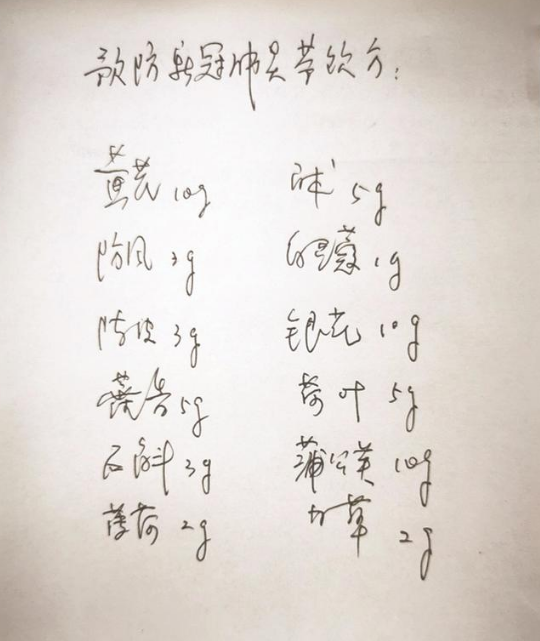 预防新冠肺炎茶饮方：
黄芪 10g 白术 5g
防风 3g 白豆蔻 1g
陈皮 3g 银花 10g
藿香 5g 荷叶 5g
石斛 3g 蒲公英 10g
薄荷 2g 甘草 2g